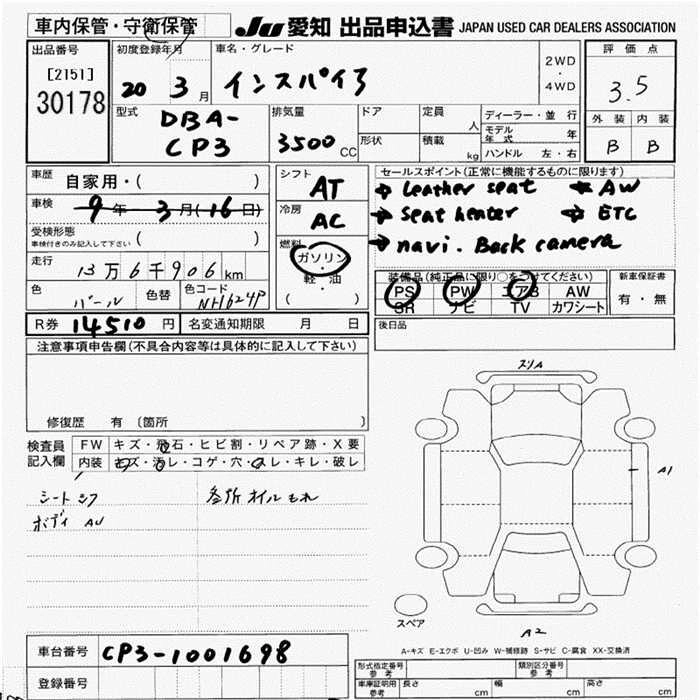 車内保管・守衛保管
JU 愛知 出品申込書 JAPAN USED CAR DEALERS ASSOCIATION
出品番号
[2151]
30178
初度登録年月
20 3月
車名・グレード
インスパイろ
2WD
・
4WD
評価点
3.5
外装 内装
B B
型式
DBA-
CP3
排気量
3500cc
ドア
形状
定員
人
積載
kg
ディーラー・並行
モデル年式 年
ハンドル 左・右
車歴 自家用・( )
車検 9年3月(16日)
受検形態
車検付きのみ記入して下さい ( )
走行 13万6千906km
色 パール 色替 色コード NH624P
シフト
AT
冷房
AC
燃料
ガソリン
軽・油
( )
セールスポイント(正常に機能するものに限ります)
→ Leather seat → AW
→ Seat heater → ETC
→ navi. Back camera
装備品(純正品に限り○をつけてください)
PS PW エアB AW
SR ナビ TV カワシート
新車保証書
有・無
R券 14510円 名変通知期限 月 日
後日品
注意事項申告欄(不具合内容等は具体的に記入して下さい)
修復歴 有 〔箇所 〕
検査員
記入欄
FW キズ・飛石・ヒビ割・リペア跡・X要
内装 キズ・汚レ・コゲ・穴・スレ・キレ・破レ
シート シワ
多所オイルもれ
ボディ AU
スリA
A1
スペア
A2
A-キズ E-エクボ U-凹み W-補修跡 S-サビ C-腐食 XX-交換済
車台番号 CP3-1001698
登録番号
形式指定番号
参考
類別区分番号
車庫証明用
参考
長さ cm 幅 cm 高さ cm